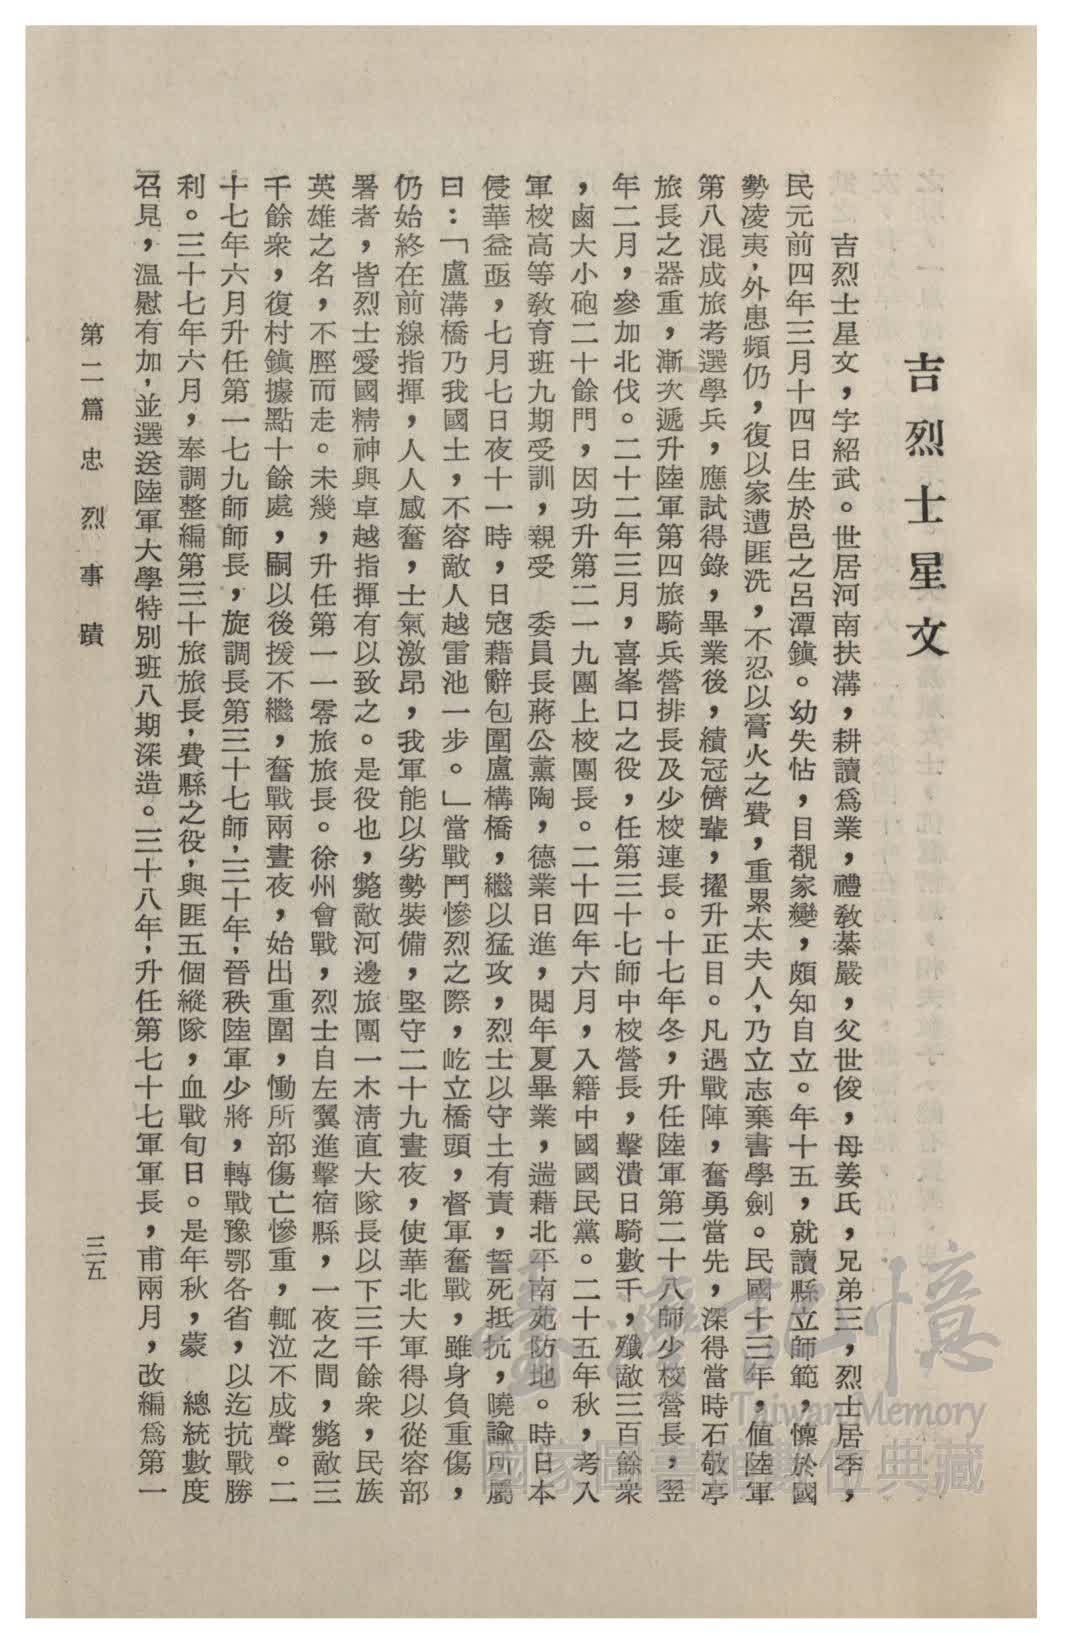 吉烈士星文
吉烈士星文，字紹武。世居河南扶溝，耕讀爲業，禮教綦嚴，父世俊，母姜氏，兄弟三，烈士居季，
民元前四年三月十四日生於邑之呂潭鎮。幼失怙，目覩家變，頗知自立。年十五，就讀縣立師範，懍於國
勢凌夷，外患頻仍，復以家遭匪洗，不忍以膏火之費，重累太夫人，乃立志棄書學劍。民國十三年，値陸軍
第八混成旅考選學兵，應試得錄，畢業後，績冠儕輩，擢升正目。凡遇戰陣，奮勇當先，深得當時石敬亭
旅長之器重，漸次遞升陸軍第四旅騎兵營排長及少校連長。十七年冬，升任陸軍第二十八師少校營長，翌
年二月，參加北伐。二十二年三月，喜峯口之役，任第三十七師中校營長，擊潰日騎數千，殲敵三百餘衆
，鹵大小砲二十餘門，因功升第二一九團上校團長。二十四年六月，入籍中國國民黨。二十五年秋，考入
軍校高等教育班九期受訓，親受　委員長蔣公薰陶，德業日進，閱年夏畢業，遄藉北平南苑防地。時日本
侵華益亟，七月七日夜十一時，日寇藉辭包圍盧構橋，繼以猛攻，烈士以守土有責，誓死抵抗，曉諭所屬
曰：「盧溝橋乃我國土，不容敵人越雷池一步。」當戰鬥慘烈之際，屹立橋頭，督軍奮戰，雖身負重傷，
仍始終在前線指揮，人人感奮，士氣激昂，我軍能以劣勢裝備，堅守二十九晝夜，使華北大軍得以從容部
署者，皆烈士愛國精神與卓越指揮有以致之。是役也，斃敵河邊旅團一木淸直大隊長以下三千餘衆，民族
英雄之名，不脛而走。未幾，升任第一一零旅旅長。徐州會戰，烈士自左翼進擊宿縣，一夜之間，斃敵三
千餘衆，復村鎮據點十餘處，嗣以後援不繼，奮戰兩晝夜，始出重圍，慟所部傷亡慘重，輒泣不成聲。二
十七年六月升任第一七九師師長，旋調長第三十七師，三十年，晉秩陸軍少將，轉戰豫鄂各省，以迄抗戰勝
利。三十七年六月，奉調整編第三十旅旅長，費縣之役，與匪五個縱隊，血戰旬日。是年秋，蒙　總統數度
召見，溫慰有加，並選送陸軍大學特別班八期深造。三十八年，升任第七十七軍軍長，甫兩月，改編爲第一
第二篇 忠烈事蹟
三五
臺灣記憶
Taiwan Memory
國家圖書館數位典藏